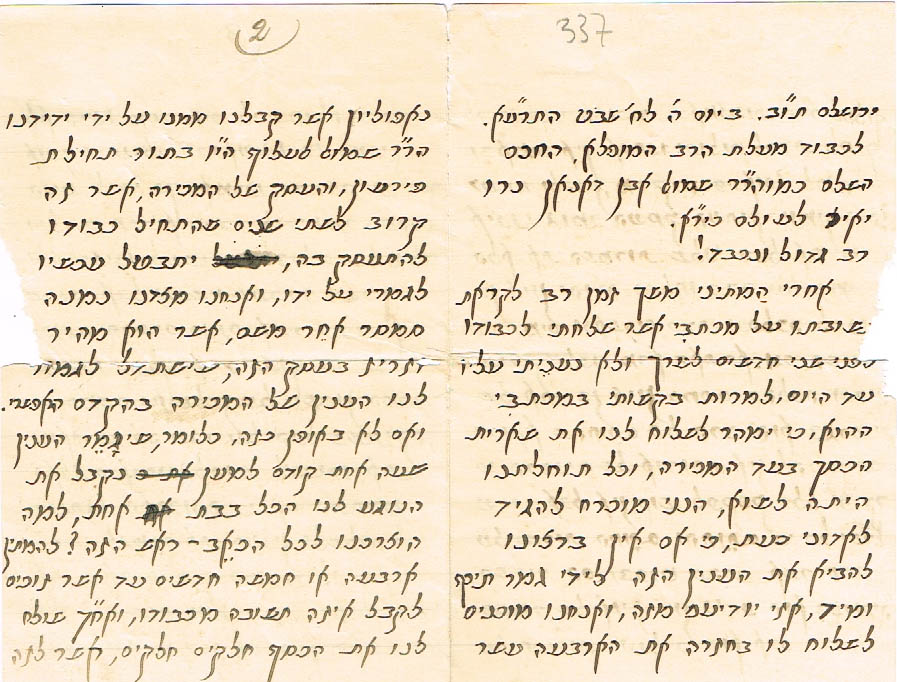 337
ירושלם ת"ו. ביום ה' לח' שבט התרע"א.
לכבוד מעלת הרב המופלא, החכם
השלם כמוהר"ר שמואל אבן דאנאן נרו
יאיר לעולם כי"א.
רב גדול ונכבד!
אחרי הַמתיני משך זמן רב לקראת
תשובתו על מכתבִי אשר שלחתי לכבודו
לפני שני חדשים לערך ולא נעניתי עליו
עד היום, למרות בקשותי במכתבי
ההוא, כי ימהר לשלוח לנו את שארית
הכסף בעד המכירה, וכל תוחלתנו
היתה לשוא, הנני מוכרח להגיד
לאדוני כעת, כי אם אין ברצונו
להביא את הענין הזה לידי גמר תיכף
ומיד, אזי יודיענו מזה, ואנחנו מוכנים
לשלוח לו בחזרה את הארבעה עשר
2
נאפוליון אשר קבלנו ממנו על ידי ידידנו
הר"ר שמואל לעלוף הי"ו בתור תחילת
פירעון, והעסק של המכירה, אשר זה
קרוב לשתי שנים שהתחיל כבודו
להתעסק בה, יתבטל עכשיו
לגמרי על ידו, ואנחנו מצדנו נמנה
סמסר אחֵר משם, אשר הוא מהיר
וזריז בעסק הזה, שישתדל לגמור
לנו הענין של המכירה בהקדם האפשרי.
ואם לא באופן כזה, כלומר, שיגָמֵר הענין
שעה אחת קודם למען נקבל את
הנוגע לנו הכל בבת אחת, למה
הוצרכנו לכל הכאֵב-ראש הזה? להמתין
ארבעה או חמשה חדשים עד אשר זוכים
לקבל איזה תשובה מכבודו, ואח"ך שולח
לנו את הכסף חלקים חלקים, אשר לזה